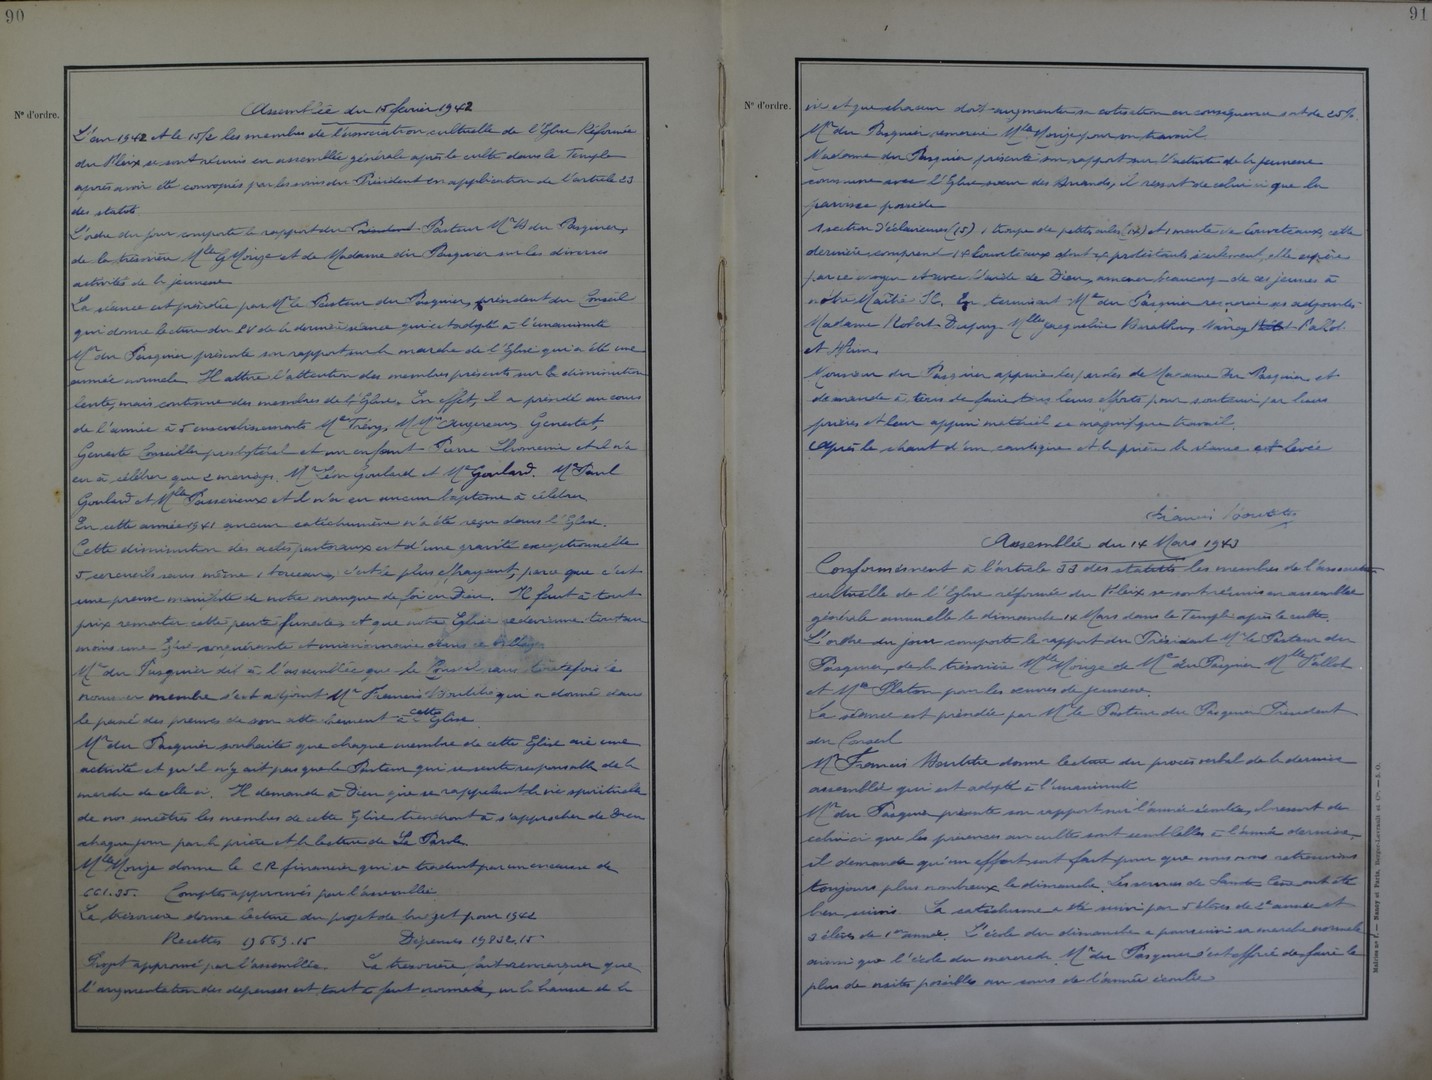 90
N° d'ordre.
Assemblée du 15 février 1942
L'an 1942 et le 15/2 les membres de l'association cultuelle de l'Eglise Réformée
du Fleix se sont réunis en assemblée générale après le culte dans le Temple
après avoir été convoqués par les soins du Président en application de l'article 23
des statuts.
L'ordre du jour comporte le rapport du Président Pasteur Mr du Pasquier,
de la trésorière Mlle G Morize et de Madame du Pasquier sur les diverses
activités de la jeunesse
La séance est présidée par Mr le Pasteur du Pasquier, président du Conseil
qui donne lecture du P.V de la dernière séance qui est adopté à l'unanimité
Mr du Pasquier présente son rapport sur la marche de l'Eglise qui a été une
année normale. Il attire l'attention des membres présents sur la diminution
lente, mais continue des membres de l'Eglise. En effet, il a présidé au cours
de l'année à 5 ensevelissements
Conseiller presbytéral et un enfant Pierre et il n'a
eu à célébrer que 2 mariages. Mr Léon Goulard et Goulard. Mr Paul
Goulard et Mlle et il n'a eu aucun baptême à célébrer
En cette année 1941 aucun catéchumène n'a été reçu dans l'Eglise.
Cette diminution des actes pastoraux est d'une gravité exceptionnelle
5 cercueils sans même 1 berceau, c'est le plus effrayant, parce que c'est
une preuve manifeste de notre manque de foi en Dieu. Il faut à tout
prix remonter cette pente funeste, et que notre Eglise redevienne
une Eglise et missionnaire dans ce village
Mr du Pasquier dit à l'assemblée que le Conseil sans toutefois le
nommer membre s'est adjoint Mr Francis qui a donné dans
le passé des preuves de son attachement à cette Eglise
Mr du Pasquier souhaite que chaque membre de cette Eglise ait une
activité et qu'il n'y ait pas que le Pasteur qui se sente responsable de la
marche de celle ci. Il demande à Dieu que se rappelant la vie spirituelle
de nos ancêtres les membres de cette Eglise tiendront à s'approcher de Dieu
chaque jour par la prière et la lecture de Sa Parole.
Mlle Morize donne le C.R financier qui se traduit par un
661.35. Comptes approuvés par l'assemblée
La trésorière donne lecture du projet de budget pour 1942
Recettes 19669.15 Dépenses 19832.15
Projet approuvé par l'assemblée. La trésorière fait remarquer que
l'augmentation des dépenses est tout à fait normale, vu la hausse de la
91
N° d'ordre.
vie et que chacun doit augmenter sa cotisation en conséquence soit de 25%
Mr du Pasquier remercie Mlle Morize pour son travail
Madame du Pasquier présente son rapport sur l'activité de la jeunesse
commune avec l'Eglise sœur des, il ressort de celui ci que la
paroisse possède
1 section d'éclaireuses (15) 1 troupe de petites ailes et 1 meute de louveteaux, cette
dernière comprend louveteaux dont protestants seulement, elle espère
par ce moyen et avec l'aide de Dieu, amener beaucoup de ces jeunes à
notre Maître J.C. En terminant Me du Pasquier remercie ses adjointes
Madame Robert Dupuy Mlles Jacqueline Nancy Pallot
et
Monsieur du Pasquier appuie les paroles de Madame Du Pasquier et
demande à tous de faire tous leurs efforts pour soutenir par leurs
prières et leur appui matériel ce magnifique travail.
Après le chant d'un cantique et la prière la séance est levée
Francis
Assemblée du 14 Mars 1943
Conformément à l'article 33 des statuts les membres de l'association
cultuelle de l'Eglise réformée du Fleix se sont réunis en assemblée
générale annuelle le dimanche 14 Mars dans le Temple après le culte.
L'ordre du jour comporte le rapport du Président Mr le Pasteur du
Pasquier, de la trésorière Mlle Morize de Me du Pasquier Mlle Pallot
et Platon pour les œuvres de jeunesse.
La séance est présidée par Mr le Pasteur du Pasquier Président
du Conseil
Mr Francis donne lecture du procès verbal de la dernière
assemblée qui est adopté à l'unanimité
Mr du Pasquier présente son rapport sur l'année écoulée, il ressort de
celui ci que les présences aux cultes sont semblables à l'année dernière,
il demande qu'un effort soit fait pour que nous nous retrouvions
toujours plus nombreux le dimanche. Les services de Sainte Cène ont été
bien suivis. Le catéchisme a été suivi par 5 élèves de 2e année et
3 élèves de 1ère année. L'école du dimanche a poursuivi sa marche normale
ainsi que l'école du mercredi. Mr du Pasquier s'est efforcé de faire le
plus de visites possibles au cours de l'année écoulée
Nancy et Paris, Berger-Levrault et Cie.